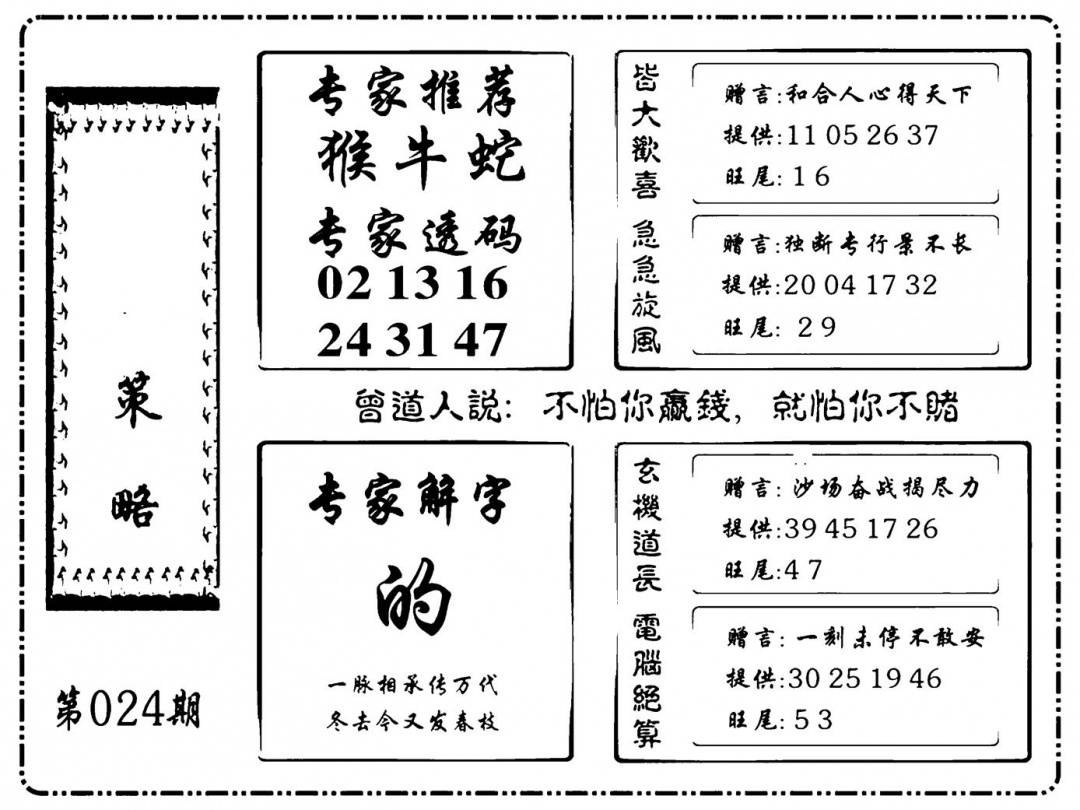 策略
第024期
专家推荐
猴牛蛇
专家透码
02 13 16
24 31 47
皆大歡喜
赠言:和合人心得天下
提供:11 05 26 37
旺尾: 1 6
急急旋風
赠言:独断专行景不长
提供:20 04 17 32
旺尾: 2 9
曾道人説: 不怕你贏錢, 就怕你不賭
专家解字
的
一脉相承传万代
冬去今又发春枝
玄機道長
赠言: 沙场奋战揭尽力
提供:39 45 17 26
旺尾:4 7
電腦絕算
赠言: 一刻未停不敢安
提供:30 25 19 46
旺尾:5 3